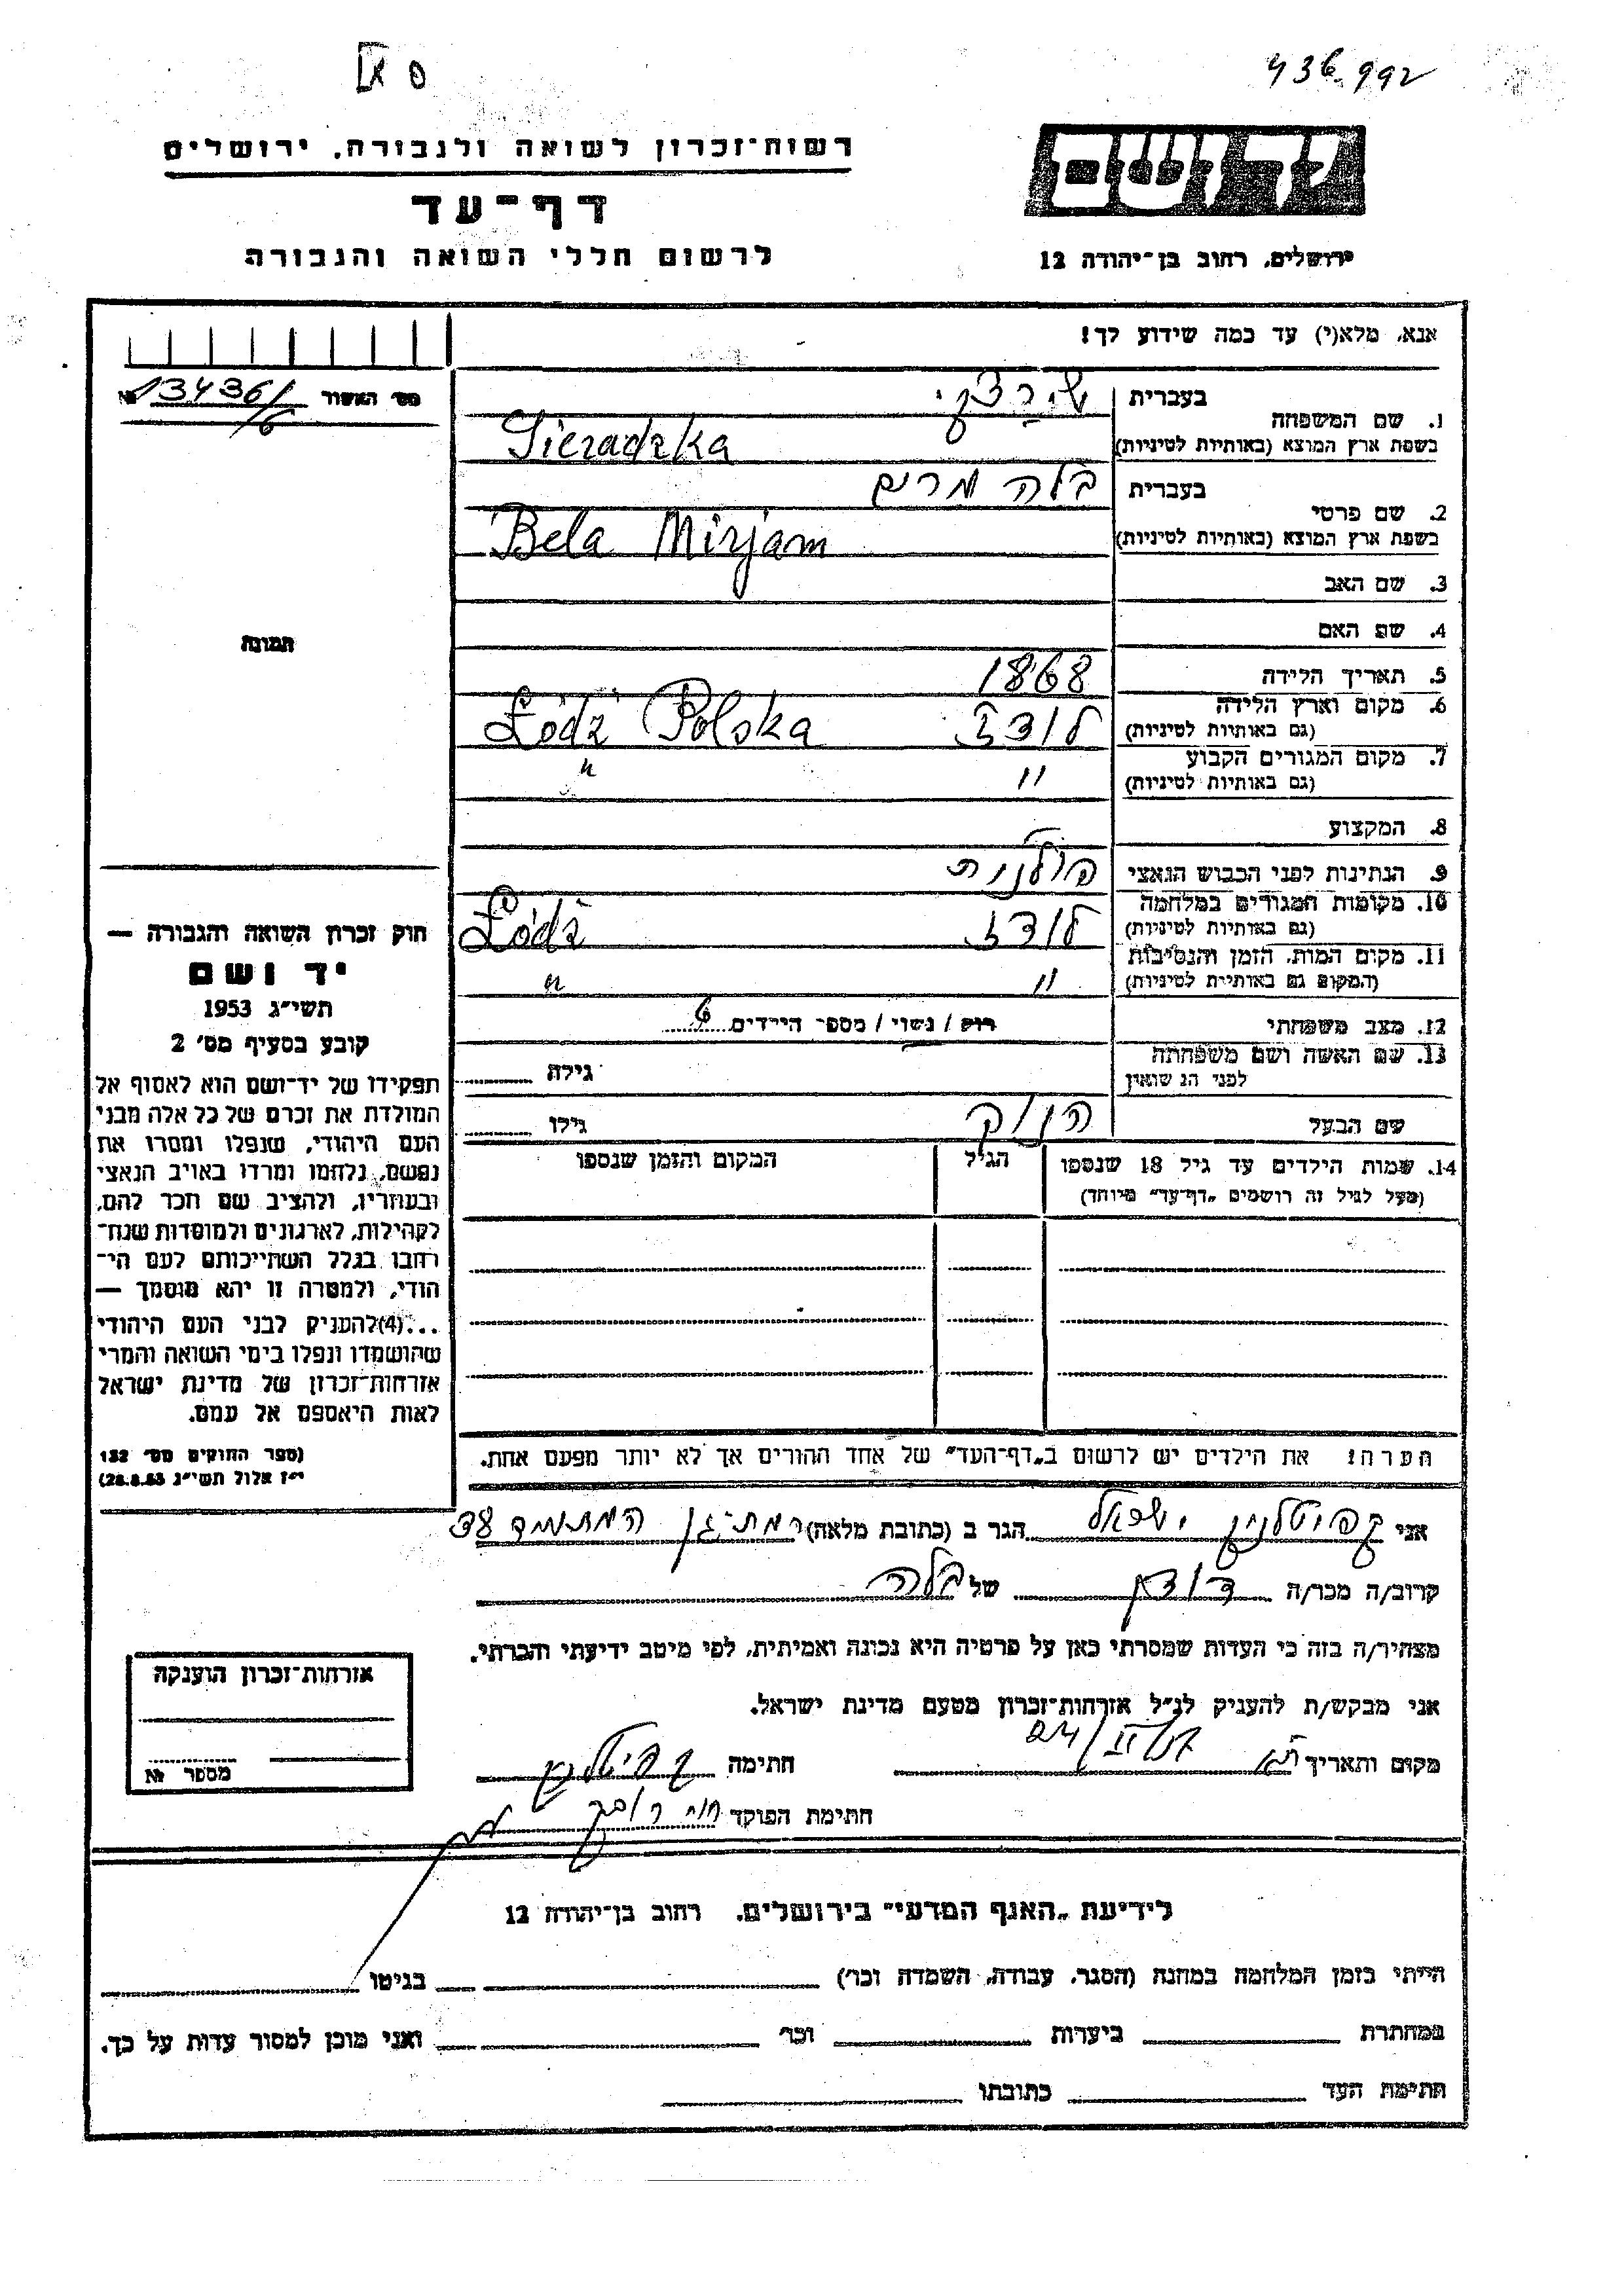 436992
רשות-זכרון לשואה ולגבורה, ירושלים
דף-עד
לרשום חללי השואה והגבורה
ירושלים, רחוב בן-יהודה 12
אנא, מלא(י) עד כמה שידוע לך!
מס' האשור № 13436/6
תמונה
1. שם המשפחה
בעברית
Sieradzka
בשפת ארץ המוצא (באותיות לטיניות)
2. שם פרטי
בעברית בלה מרים
בשפת ארץ המוצא (באותיות לטיניות) Bela Mirjam
3. שם האב
4. שם האם
5. תאריך הלידה 1868
6. מקום וארץ הלידה לודז Łódź Polska
(גם באותיות לטיניות)
7. מקום המגורים הקבוע " "
(גם באותיות לטיניות)
8. המקצוע
9. הנתינות לפני הכבוש הנאצי פולנית
10. מקומות המגורים במלחמה לודז Łódź
(גם באותיות לטיניות)
11. מקום המות, הזמן והנסיבות " "
(המקום גם באותיות לטיניות)
12. מצב משפחתי רוק / נשוי / מספר הילדים 6
13. שם האשה ושם משפחתה גילה
לפני הנשואין
שם הבעל הנוק גילו
14. שמות הילדים עד גיל 18 שנספו הגיל המקום והזמן שנספו
(מעל לגיל זה רושמים "דף-עד" מיוחד)
הערה: את הילדים יש לרשום ב"דף-העד" של אחד ההורים אך לא יותר מפעם אחת.
חוק זכרון השואה והגבורה —
יד ושם
תשי"ג 1953
קובע בסעיף מס' 2
תפקידו של יד-ושם הוא לאסוף אל
המולדת את זכרם של כל אלה מבני
העם היהודי, שנפלו ומסרו את
נפשם, נלחמו ומרדו באויב הנאצי
ובעוזריו, ולהציב שם וזכר להם,
לקהילות, לארגונים ולמוסדות שנח-
רבו בגלל השתייכותם לעם הי-
הודי, ולמטרה זו יהא מוסמך —
...(4) להעניק לבני העם היהודי
שהושמדו ונפלו בימי השואה והמרי
אזרחות-זכרון של מדינת ישראל
לאות היאספם אל עמם.
(ספר החוקים מס' 132
י"ז אלול תשי"ג 28.8.53)
אני קפיטלניק ישראל הגר ב (כתובת מלאה) רמת-גן המתמיד 38
קרוב/ה מכר/ה דודן של בלה
מצהיר/ה בזה כי העדות שמסרתי כאן על פרטיה היא נכונה ואמיתית, לפי מיטב ידיעתי והכרתי.
אני מבקש/ת להעניק לנ"ל אזרחות-זכרון מטעם מדינת ישראל.
מקום ותאריך חתימה
חתימת הפוקד
אזרחות-זכרון הוענקה
מספר №
לידיעת "האגף המדעי" בירושלים, רחוב בן-יהודה 12
הייתי בזמן המלחמה במחנה (הסגר, עבודה, השמדה וכו') בגיטו
במחתרת ביערות וכו' ואני מוכן למסור עדות על כך.
חתימת העד כתובתו